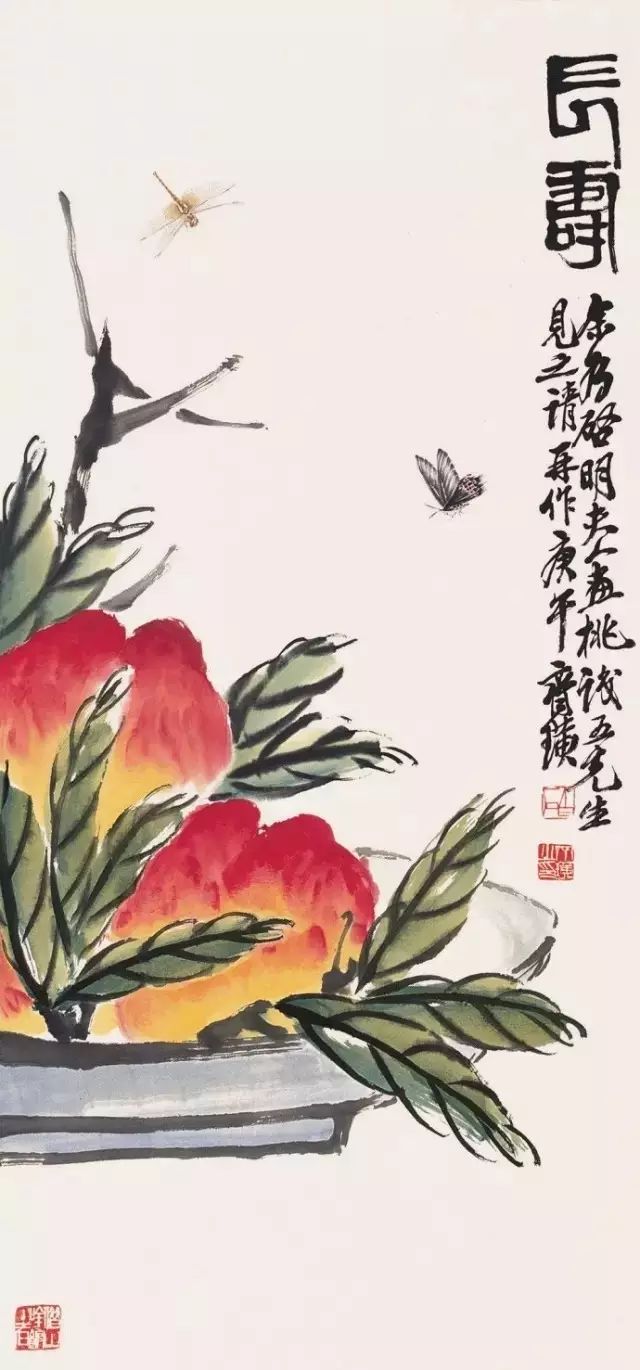 長壽
余為啓明夫人畫桃識五先生
見之請再作庚午齊璜